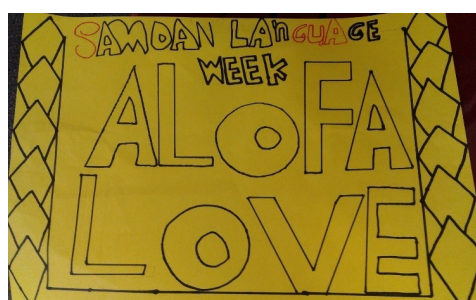 SAMOAN LAnGUAGE
WEEK
ALOFA
LOVE